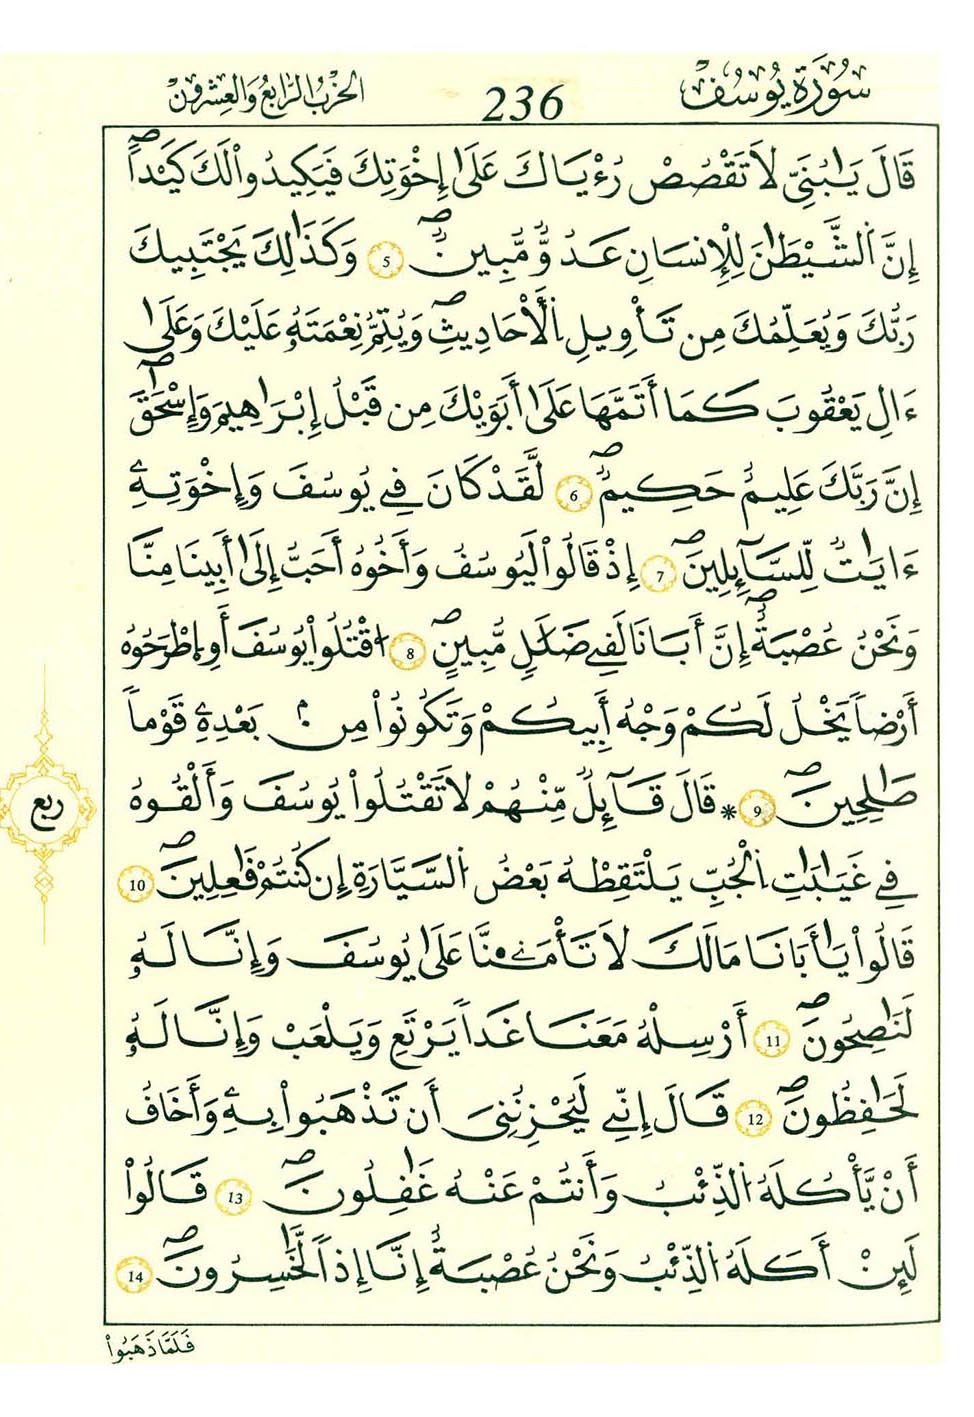 سُورَةُ يُوسُفَ 236 الحِزْبُ الرَّابِعُ وَالعِشْرُونَ
قَالَ يَٰبُنَيِّ لَا تَقْصُصْ رُءْيَاكَ عَلَىٰ إِخْوَتِكَ فَيَكِيدُواْ لَكَ كَيْداًۖ
إِنَّ اَ۬لشَّيْطَٰنَ لِلْإِنسَانِ عَدُوّٞ مُّبِينٞۖ 5 وَكَذَٰلِكَ يَجْتَبِيكَ
رَبُّكَ وَيُعَلِّمُكَ مِن تَأْوِيلِ اِ۬لْأَحَادِيثِۖ وَيُتِمُّ نِعْمَتَهُۥ عَلَيْكَ وَعَلَىٰ
ءَالِ يَعْقُوبَ كَمَا أَتَمَّهَا عَلَىٰ أَبَوَيْكَ مِن قَبْلُ إِبْرَٰهِيمَ وَإِسْحَٰقَۖ
إِنَّ رَبَّكَ عَلِيمٌ حَكِيمٞۖ 6 لَّقَدْ كَانَ فِے يُوسُفَ وَإِخْوَتِهِۦ
ءَايَٰتٞ لِّلسَّآئِلِينَۖ 7 إِذْ قَالُواْ لَيُوسُفُ وَأَخُوهُ أَحَبُّ إِلَىٰ أَبِينَا مِنَّا
وَنَحْنُ عُصْبَةٌۖ إِنَّ أَبَانَا لَفِے ضَلَٰلٖ مُّبِينٍۖ 8 اُ۟قْتُلُواْ يُوسُفَ أَوِ اِ۪طْرَحُوهُ
أَرْضاٗ يَخْلُ لَكُمْ وَجْهُ أَبِيكُمْ وَتَكُونُواْ مِنۢ بَعْدِهِۦ قَوْماٗ
صَٰلِحِينَۖ 9 * قَالَ قَآئِلٞ مِّنْهُمْ لَا تَقْتُلُواْ يُوسُفَ وَأَلْقُوهُ
فِے غَيَٰبَٰتِ اِ۬لْجُبِّ يَلْتَقِطْهُ بَعْضُ اُ۬لسَّيَّارَةِ إِن كُنتُمْ فَٰعِلِينَۖ 10
قَالُواْ يَٰأَبَانَا مَا لَكَ لَا تَأْمَ۬نَّا عَلَىٰ يُوسُفَ وَإِنَّا لَهُۥ
لَنَٰصِحُونَۖ 11 أَرْسِلْهُ مَعَنَا غَداٗ يَرْتَعِ وَيَلْعَبْ وَإِنَّا لَهُۥ
لَحَٰفِظُونَۖ 12 قَالَ إِنِّے لَيُحْزِنُنِيَ أَن تَذْهَبُواْ بِهِۦ وَأَخَافُ
أَنْ يَّأْكُلَهُ اُ۬لذِّئْبُ وَأَنتُمْ عَنْهُ غَٰفِلُونَۖ 13 قَالُواْ
لَئِنْ أَكَلَهُ اُ۬لذِّئْبُ وَنَحْنُ عُصْبَةٌ إِنَّا إِذاٗ لَّخَٰسِرُونَۖ 14
ربع
فَلَمَّا ذَهَبُواْ